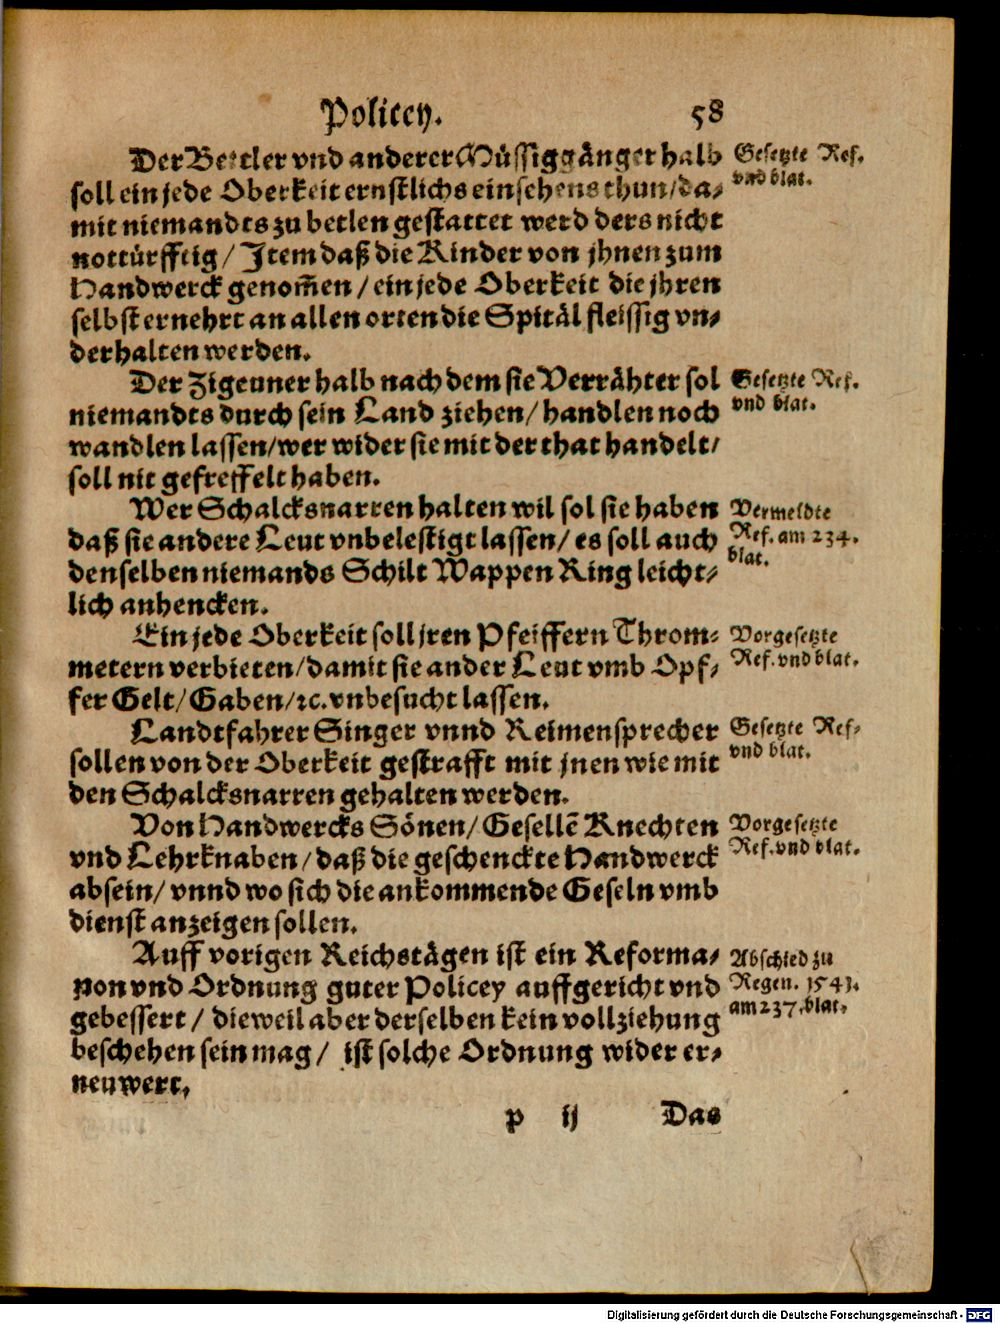 Policey. 58
Der Betler vnd anderer Müssiggänger halb
soll ein jede Oberkeit ernstlichs einsehens thun/da⸗
mit niemandts zu betlen gestattet werd ders nicht
nottürfftig/ Item daß die Kinder von jhnen zum
Handwerck genom̄en/ ein jede Oberkeit die jhren
selbst ernehrt an allen orten die Spitäl fleissig vn⸗
derhalten werden.
Gesetzte Ref.
vnd blat.
Der Zigeuner halb nach dem sie Verrähter sol
niemandts durch sein Land ziehen/ handlen noch
wandlen lassen/wer wider sie mit der that handelt/
soll nit gefreffelt haben.
Gesetzte Ref.
vnd blat.
Wer Schalcksnarren halten wil sol sie haben
daß sie andere Leut vnbelestigt lassen/ es soll auch
denselben niemands Schilt Wappen Ring leicht⸗
lich anhencken.
Vermeldte
Ref. am 234.
blat.
Ein jede Oberkeit soll jren Pfeiffern Throm⸗
metern verbieten/damit sie ander Leut vmb Opf⸗
fer Gelt/ Gaben/ ꝛc. vnbesucht lassen.
Vorgesetzte
Ref. vnd blat.
Landtfahrer Singer vnnd Reimensprecher
sollen von der Oberkeit gestrafft mit jnen wie mit
den Schalcksnarren gehalten werden.
Gesetzte Ref⸗
vnd blat.
Von Handwercks Sönen/ Geselle͂ Knechten
vnd Lehrknaben/ daß die geschenckte Handwerck
absein/ vnnd wo sich die ankommende Geseln vmb
dienst anzeigen sollen.
Vorgesetzte
Ref. vnd blat.
Auff vorigen Reichstägen ist ein Reforma⸗
tion vnd Ordnung guter Policey auffgericht vnd
gebessert/ dieweil aber derselben kein vollziehung
beschehen sein mag/ ist solche Ordnung wider er⸗
neuwert.
Abschied zu
Regen. 1541.
am 237. blat.
p ij Das
Digitalisierung gefördert durch die Deutsche Forschungsgemeinschaft - DFG